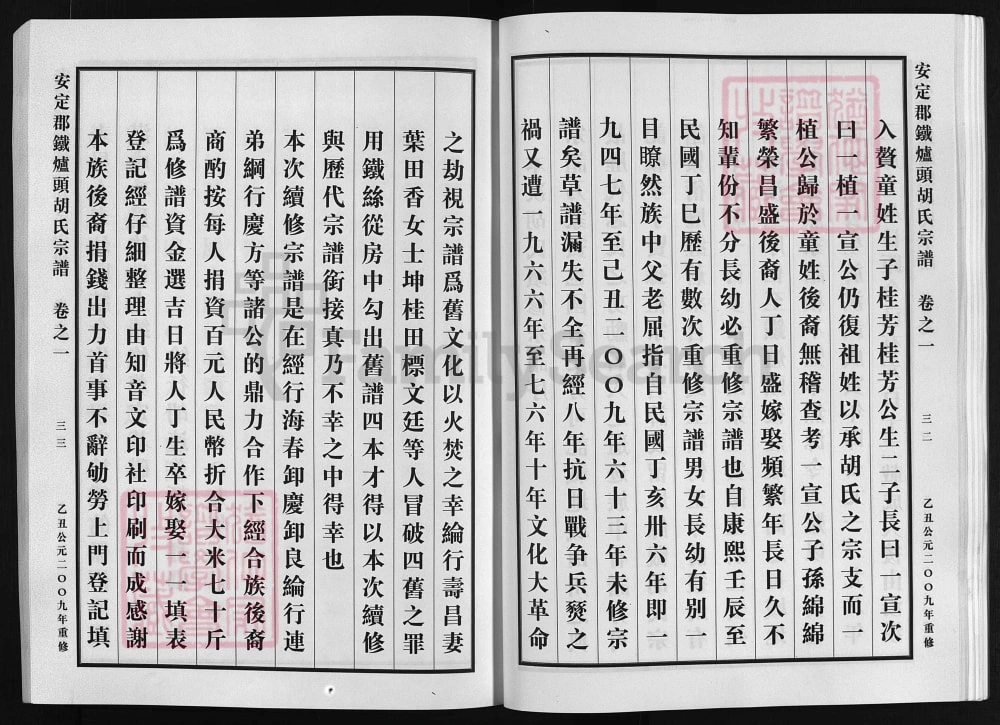 安定郡鐵爐頭胡氏宗譜 卷之一 三二 乙丑公元二〇〇九年重修
入贅童姓生子桂芳桂芳公生二子長曰一宣次
曰一植一宣公仍復祖姓以承胡氏之宗支而一
植公歸於童姓後裔無稽查考一宣公子孫綿綿
繁榮昌盛後裔人丁日盛嫁娶頻繁年長日久不
知輩份不分長幼必重修宗譜也自康熙壬辰至
民國丁巳歷有數次重修宗譜男女長幼有別一
目瞭然族中父老屈指自民國丁亥卅六年即一
九四七年至己丑二〇〇九年六十三年未修宗
譜矣草譜漏失不全再經八年抗日戰争兵燹之
禍又遭一九六六年至七六年十年文化大革命
之劫視宗譜爲舊文化以火焚之幸綸行壽昌妻
葉田香女士坤桂田標文廷等人冒破四舊之罪
用鐵絲從房中勾出舊譜四本才得以本次續修
與歷代宗譜銜接真乃不幸之中得幸也
本次續修宗譜是在經行海春卸慶卸良綸行連
弟綱行慶方等諸公的鼎力合作下經合族後裔
商酌按每人捐資百元人民幣折合大米七十斤
爲修譜資金選吉日將人丁生卒嫁娶一一填表
登記經仔細整理由知音文印社印刷而成感謝
本族後裔捐錢出力首事不辭劬勞上門登記填
安定郡鐵爐頭胡氏宗譜 卷之一 三三 乙丑公元二〇〇九年重修
FamilySearch